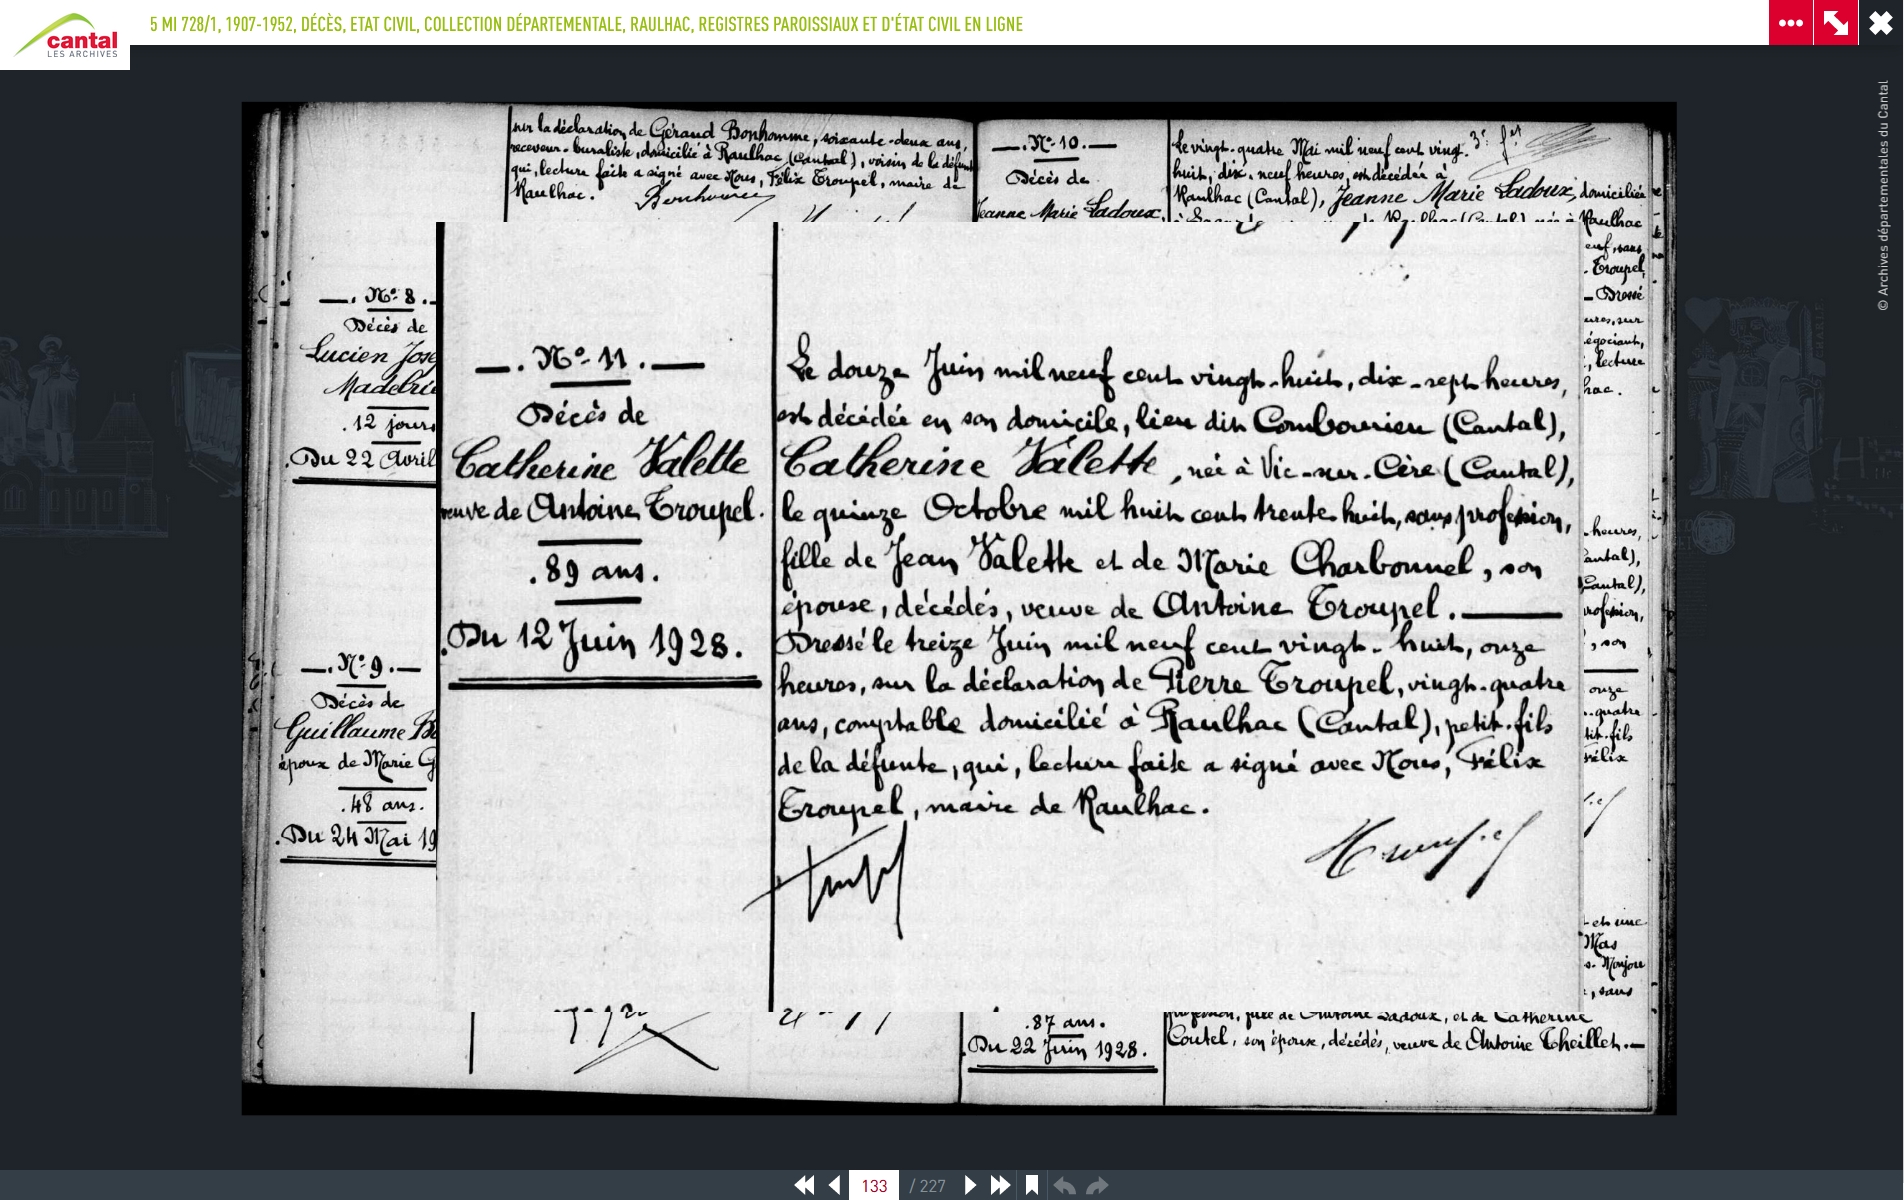 cantal
LES ARCHIVES
5 MI 728/1, 1907-1952, DÉCÈS, ETAT CIVIL, COLLECTION DÉPARTEMENTALE, RAULHAC, REGISTRES PAROISSIAUX ET D'ÉTAT CIVIL EN LIGNE
© Archives départementales du Cantal
sur la déclaration de Géraud Bonhomme, soixante-deux ans,
receveur-buraliste, domicilié à Raulhac (Cantal), voisin de la défunte
qui, lecture faite a signé avec Nous, Félix Troupel, maire de
Raulhac.
N° 8.
Décès de
Lucien Jose
Madelri
.12 jours
.Du 22 Avril
N° 9.
Décès de
Guillaume
époux de Marie G
.48 ans.
.Du 24 Mai 19
N° 10.
Décès de
Jeanne Marie Ladoux,
Le vingt-quatre Mai mil neuf cent vingt-
huit, dix-neuf heures, est décédée à
Raulhac (Cantal), Jeanne Marie Ladoux, domiciliée
Raulhac
euf, sans
Troupel,
Dressé
ures, sur
égociant,
, lecture
hac.
—. N° 11. —
Décès de
Catherine Valette
veuve de Antoine Troupel.
.89 ans.
.Du 12 Juin 1928.
Le douze Juin mil neuf cent vingt-huit, dix-sept heures,
est décédée en son domicile, lieu dit Combourieu (Cantal),
Catherine Valette, née à Vic-sur-Cère (Cantal),
le quinze Octobre mil huit cent trente huit, sans profession,
fille de Jean Valette et de Marie Charbonnel, son
épouse, décédés, veuve de Antoine Troupel. —
Dressé le treize Juin mil neuf cent vingt-huit, onze
heures, sur la déclaration de Pierre Troupel, vingt-quatre
ans, comptable domicilié à Raulhac (Cantal), petit-fils
de la défunte, qui, lecture faite a signé avec Nous, Félix
Troupel, maire de Raulhac.
heures,
antal),
Cantal),
rofession,
, son
onze
-quatre
tit-fils
Félix
et une
Mas
, sans
.87 ans.
.Du 22 Juin 1928.
profession, fille de Antoine Ladoux, et de Catherine
Coutel, son épouse, décédés, veuve de Antoine Theillet.—
133 / 227